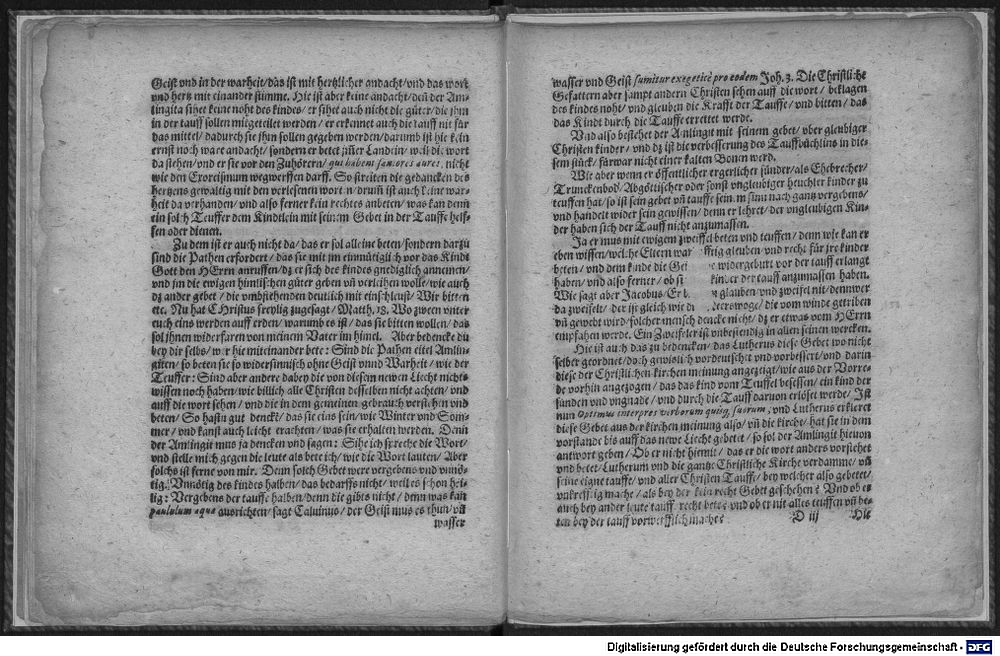 Geist vnd in der warheit/das ist mit hertzlicher andacht/vnd das wort
vnd hertz mit einander stimme. Hie ist aber keine andacht/deñ der Am-
lingita sihet keine noht des kindes/er sihet auch nicht die güter/die jhm
in der tauff sollen mitgeteilet werden/er erkennet auch die tauff nit für
das mittel/dadurch sie jhm sollen gegeben werden/darumb ist hie kein
ernst noch ware andacht/sondern er betet weil die wort
da stehen/vnd er sie vor den Zuhörern/qui habent saniores aures, nicht
wie den Exorcismum wegwerffen darff. So streiten die gedancken des
hertzens gewaltig mit den verlesenen worten/drum̃ ist auch keine war-
heit da verhanden/vnd also ferner kein rechtes anbeten/was kan denn
ein solch Teuffer dem Kindtlein mit seinem Gebet in der Tauffe helf-
fen oder dienen.
Zu dem ist er auch nicht da/das er sol alleine beten/sondern darzu
sind die Pathen erfordert/das sie mit jm einmütiglich vor das Kindt
Gott den HErrn anruffen/dz er sich des kindes gnediglich annemen/
vnd jm die ewigen himlischen güter geben vñ verleihen wolle/wie auch
dz ander gebet/die vmbstehenden deutlich mit einschleust/Wir bitten
etc. Nu hat Christus freylig zugesagt/Matth. 18. Wo zween vnter
euch eins werden auff erden/warumb es ist/das sie bitten wollen/das
sol jhnen widerfaren von meinem Vater im himel. Aber bedencke du
bey dir selbs/wer hie miteinander bete: Sind die Pathen eitel Amlin-
giten/so beten sie so widersinnisch ohne Geist vnnd Warheit/wie der
Teuffer: Sind aber andere dabey die von diesem newen Liecht nichts
wissen noch haben/wie billich alle Christen desselben nicht achten/vnd
auff die wort sehen/vnd die in dem gemeinen gebrauch verstehen vnd
beten/So hastu gut dencke/das sie eins sein/wie Winter vnd Som-
mer/vnd kanst auch leicht erachten/was sie erhalten werden. Denn
der Amlingit mus ja dencken vnd sagen: Sihe ich spreche die Wort/
vnd stelle mich gegen die leute als bete ich/wie die Wort lauten/Aber
solchs ist ferne von mir. Denn solch Gebet were vergebens vnd vnnö-
tig. Vnnötig des kindes halben/das bedarffs nicht/weil es schon hei-
lig: Vergebens der tauffe halben/denn die gibts nicht/denn was kan
paululum aquæ ausrichten/sagt Caluinus/der Geist mus es thun/vñ
wasser
wasser vnd Geist sumitur exegeticè pro eodem Joh. 3. Die Christliche
Gefattern aber sampt andern Christen sehen auff die wort/beklagen
des kindes noht/vnd gleuben die Krafft der Tauffe/vnd bitten/das
das Kindt durch die Tauffe errettet werde.
Vnd also bestehet der Amlingit mit seinem gebet/vber gleubiger
Christen kinder/vnd dz ist die verbesserung des Tauffbüchlins in die-
sem stück/fürwar nicht einer kalten Bonen werd.
Wie aber wenn er öffentlicher ergerlicher sünder/als Ehebrecher/
Trunckenbold/Abgöttischer oder sonst vngleubiger heuchler kinder zu
teuffen hat/so ist sein gebet vñ tauffe seinem sinn nach gantz vergebens/
vnd handelt wider sein gewissen/denn er lehret/der vngleubigen Kin-
der haben sich der Tauff nicht anzumassen.
Ja er mus mit ewigem zweiffel beten vnd teuffen/denn wie kan er
eben wissen/welche Eltern war ffrig gleuben vnd recht für jre kinder
beten/vnd dem kinde die Gei e widergeburt vor der tauff erlangt
haben/vnd also ferner/ob si kinder der tauff anzumassen haben.
Wie sagt aber Jacobus/Er b n glauben vnd zweifel nit/denn wer
da zweifelt/der ist gleich wie di ereswoge/die vom winde getriben
vñ gewebt wird/solcher mensch dencke nicht/dz er etwas vom HErrn
empfahen werde. Ein Zweifeler ist vnbestendig in allen seinen wercken.
Hie ist auch das zu bedencken/das Lutherus diese Gebet wo nicht
selber geordnet/doch gewislich vordeutscht vnd vorbessert/vnd darin
diese der Christlichen kirchen meinung angezeigt/wie aus der Vorre-
de vorhin angezogen/das das kind vom Teuffel besessen/ein kind der
sünden vnd vngnade/vnd durch die Tauff daruon erlöset werde/Ist
nun Optimus interpres verborum quisq; suorum, vnd Lutherus erkleret
diese Gebet aus der kirchen meinung also/vñ die kirche/hat sie in dem
vorstande bis auff das newe Liecht gebetet/so sol der Amlingit hieuon
antwort geben/Ob er nicht hiemit/das er die wort anders vorstehet
vnd betet/Lutherum vnd die gantze Christliche Kirche verdamme/vñ
seine eigne tauffe/vnd aller Christen Tauffe/bey welcher also gebetet/
vnkrefftig mache/als bey der kein recht Gebet geschehen? Vnd ob es
auch bey ander leute tauff recht bete? vnd ob er nit alles teuffen vñ be-
ten bey der tauff vorwerfflich mache?
D iij
Hie
Digitalisierung gefördert durch die Deutsche Forschungsgemeinschaft - DFG